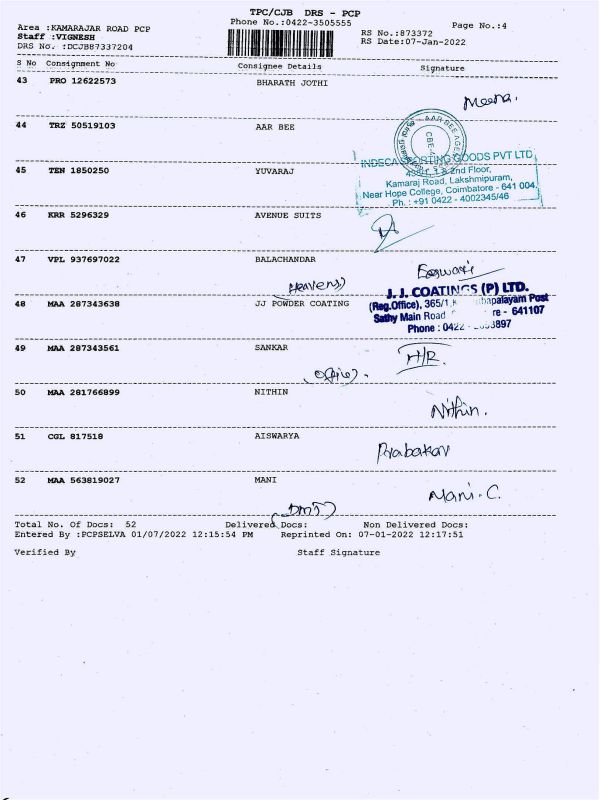 TPC/CJB DRS - PCP
Phone No.:0422-3505555
Page No.:4
Area :KAMARAJAR ROAD PCP
Staff :VIGNESH
DRS No. :DCJB87337204
RS No.:873372
RS Date:07-Jan-2022
S No Consignment No Consignee Details Signature
43 PRO 12622573 BHARATH JOTHI
Meena.
44 TRZ 50519103 AAR BEE
AAR BEE
CBE-4
45 TEN 1850250 YUVARAJ
INDECA SPORTING GOODS PVT LTD
1 & 2nd Floor,
Kamaraj Road, Lakshmipuram,
Near Hope College, Coimbatore - 641 004.
Ph. : +91 0422 - 4002345/46
46 KRR 5296329 AVENUE SUITS
47 VPL 937697022 BALACHANDAR
Eswari
J. J. COATINGS (P) LTD.
(Reg.Office), 365/1, apalayam Post
Sathy Main Road re - 641107
Phone : 0422 - 3897
48 MAA 287343638 JJ POWDER COATING
49 MAA 287343561 SANKAR
H/R.
(office).
50 MAA 281766899 NITHIN
Nithin.
51 CGL 817518 AISWARYA
Prabakar
52 MAA 563819027 MANI
Mani. C.
Total No. Of Docs: 52 Delivered Docs: Non Delivered Docs:
Entered By :PCPSELVA 01/07/2022 12:15:54 PM Reprinted On: 07-01-2022 12:17:51
Verified By Staff Signature